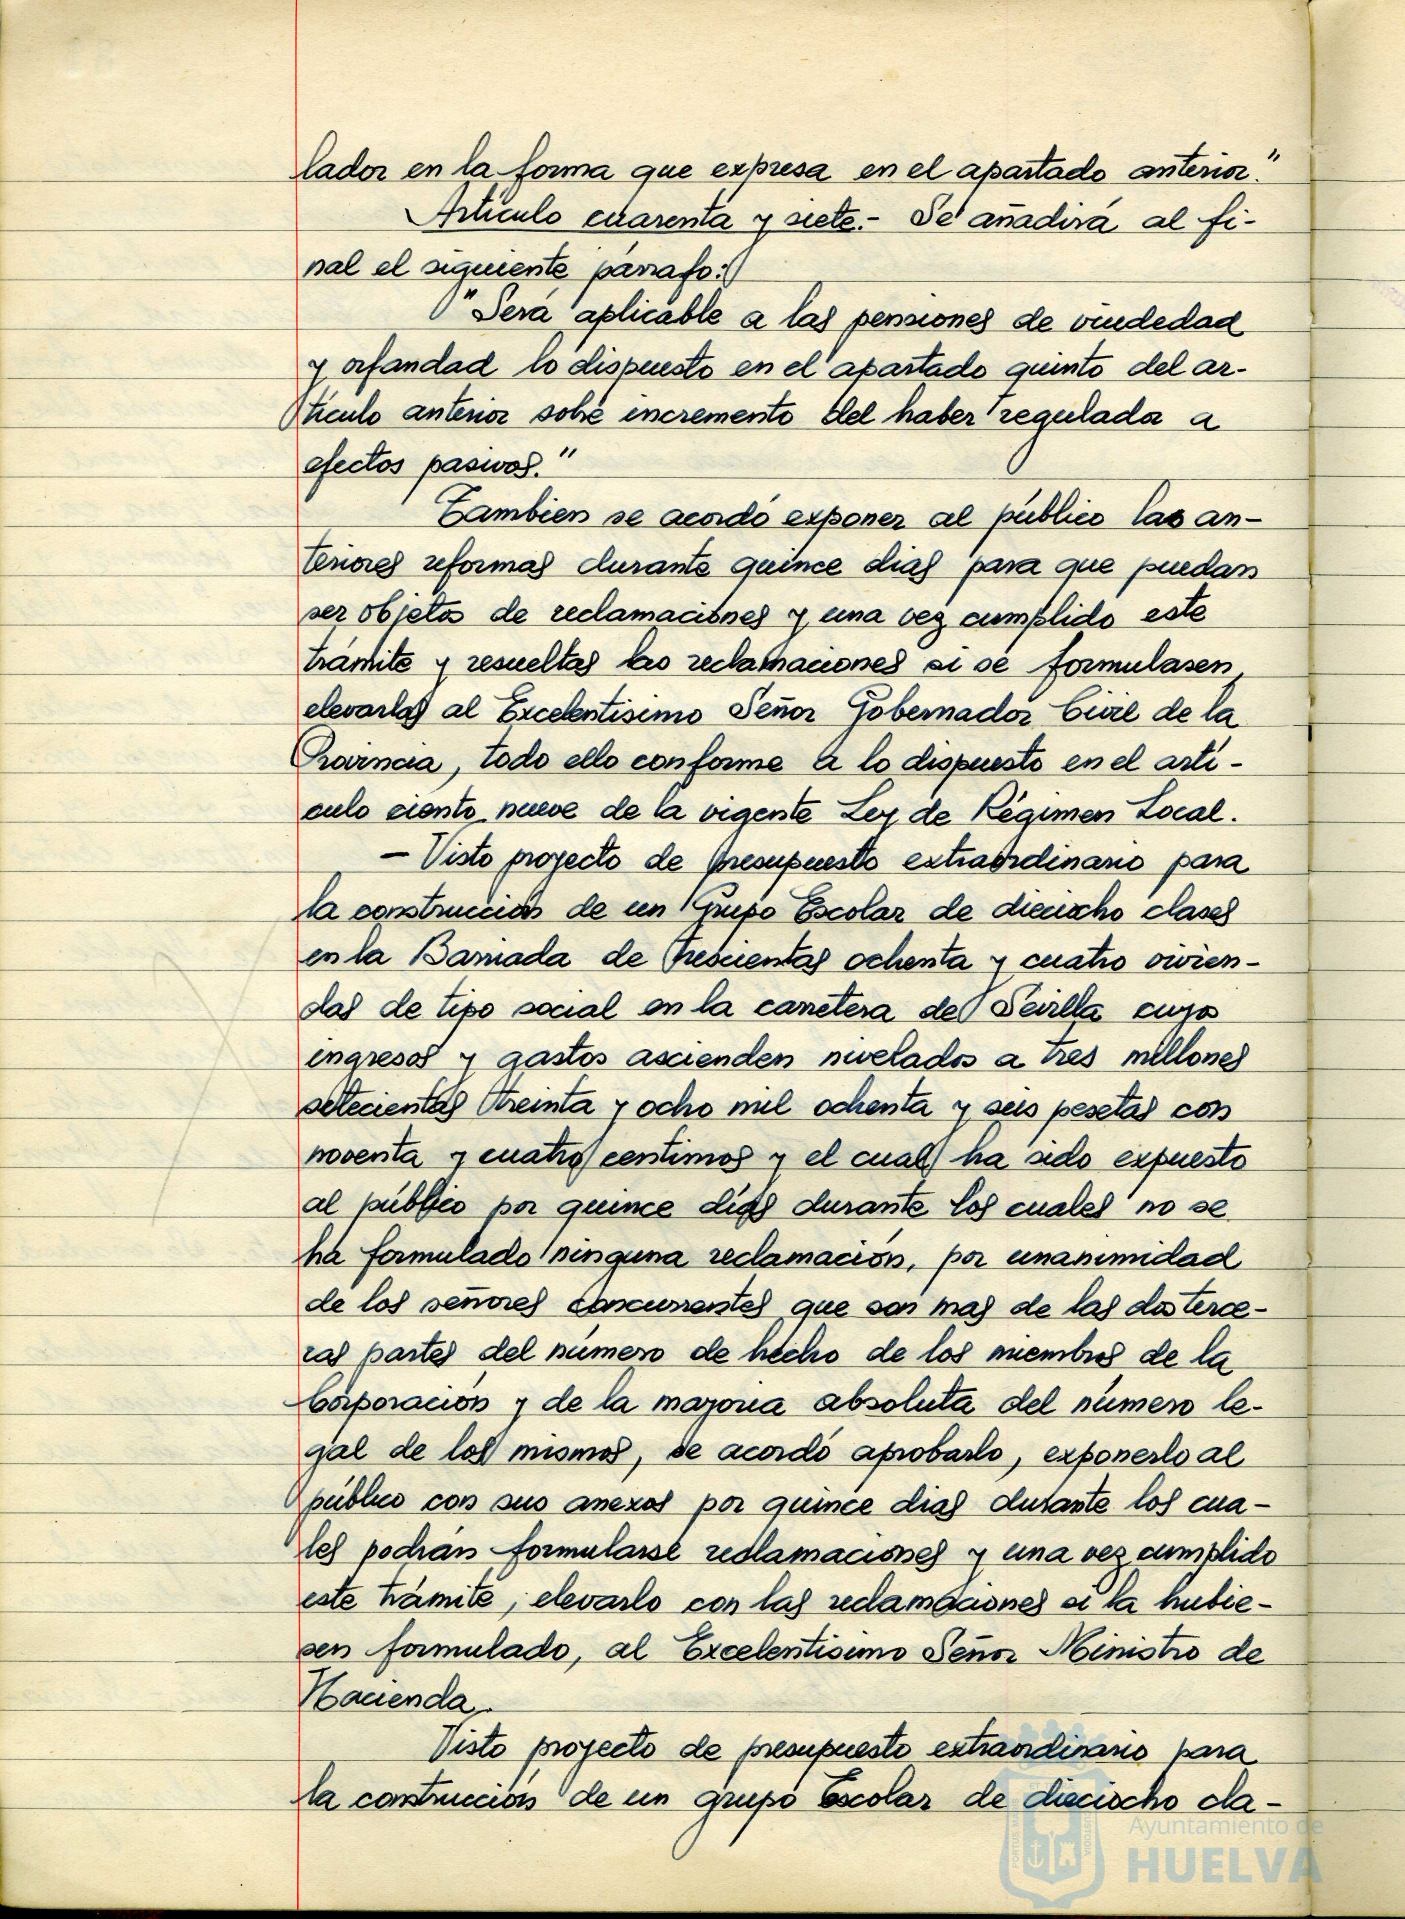 lador en la forma que expresa en el apartado anterior."
Artículo cuarenta y siete.- Se añadirá al fi-
nal el siguiente párrafo:
"Será aplicable a las pensiones de viudedad
y orfandad lo dispuesto en el apartado quinto del ar-
tículo anterior sobre incremento del haber regulador a
efectos pasivos."
Tambien se acordó exponer al público las an-
teriores reformas durante quince dias para que puedan
ser objetos de reclamaciones y una vez cumplido este
trámite y resueltas las reclamaciones si se formulasen,
elevarlas al Excelentisimo Señor Gobernador Civil de la
Provincia, todo ello conforme a lo dispuesto en el artí-
culo ciento nueve de la vigente Ley de Régimen Local.
- Visto proyecto de presupuesto extraordinario para
la construccion de un Grupo Escolar de dieciocho clases
en la Barriada de trescientas ochenta y cuatro vivien-
das de tipo social en la carretera de Sevilla cuyos
ingresos y gastos ascienden nivelados a tres millones
setecientas treinta y ocho mil ochenta y seis pesetas con
noventa y cuatro centimos y el cual ha sido expuesto
al público por quince días durante los cuales no se
ha formulado ninguna reclamación, por unanimidad
de los señores concurrentes que son mas de las dos terce-
ras partes del número de hecho de los miembros de la
Corporación y de la mayoria absoluta del número le-
gal de los mismos, se acordó aprobarlo, exponerlo al
público con sus anexos por quince dias durante los cua-
les podrán formularse reclamaciones y una vez cumplido
este trámite, elevarlo con las reclamaciones si la hubie-
sen formulado, al Excelentisimo Señor Ministro de
Hacienda.
Visto proyecto de presupuesto extraordinario para
la construcción de un grupo Escolar de dieciocho cla-
Ayuntamiento de
HUELVA